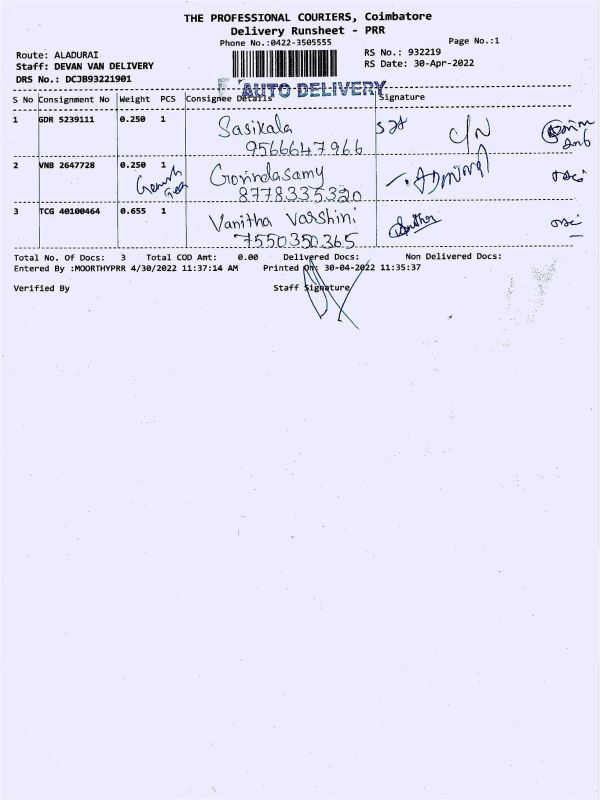 THE PROFESSIONAL COURIERS, Coimbatore
Delivery Runsheet - PRR
Phone No.:0422-3505555
Page No.:1
Route: ALADURAI
RS No.: 932219
Staff: DEVAN VAN DELIVERY
RS Date: 30-Apr-2022
DRS No.: DCJB93221901
AUTO DELIVERY
S No Consignment No Weight PCS Consignee Details Signature
1 GDR 5239111 0.250 1 Sasikala
9566647966
C/N
2 VNB 2647728 0.250 1 Govindasamy
8778335320
3 TCG 40100464 0.655 1 Vanitha Varshini
7550350365
Total No. Of Docs: 3 Total COD Amt: 0.00 Delivered Docs: Non Delivered Docs:
Entered By :MOORTHYPRR 4/30/2022 11:37:14 AM Printed On: 30-04-2022 11:35:37
Verified By Staff Signature